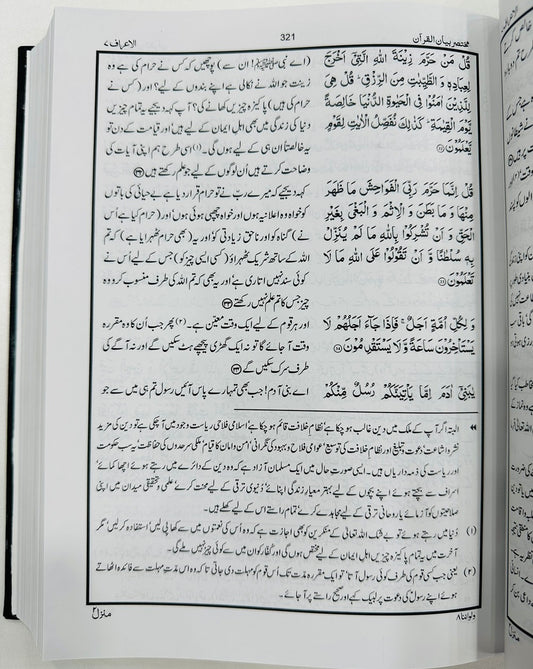 مختصر بیان القرآن
321
الاعراف ۷
قُلْ مَنْ حَرَّمَ زِيْنَةَ اللهِ الَّتِيْٓ اَخْرَجَ
لِعِبَادِهٖ وَ الطَّيِّبٰتِ مِنَ الرِّزْقِ ؕ قُلْ هِيَ
لِلَّذِيْنَ اٰمَنُوْا فِي الْحَيٰوةِ الدُّنْيَا خَالِصَةً
يَّوْمَ الْقِيٰمَةِ ؕ كَذٰلِكَ نُفَصِّلُ الْاٰيٰتِ لِقَوْمٍ
يَّعْلَمُوْنَ
قُلْ اِنَّمَا حَرَّمَ رَبِّيَ الْفَوَاحِشَ مَا ظَهَرَ
مِنْهَا وَ مَا بَطَنَ وَ الْاِثْمَ وَ الْبَغْيَ بِغَيْرِ
الْحَقِّ وَ اَنْ تُشْرِكُوْا بِاللهِ مَا لَمْ يُنَزِّلْ
بِهٖ سُلْطٰنًا وَّ اَنْ تَقُوْلُوْا عَلَى اللهِ مَا لَا
تَعْلَمُوْنَ
وَ لِكُلِّ اُمَّةٍ اَجَلٌ ۚ فَاِذَا جَآءَ اَجَلُهُمْ لَا
يَسْتَاْخِرُوْنَ سَاعَةً وَّ لَا يَسْتَقْدِمُوْنَ
يٰبَنِيْٓ اٰدَمَ اِمَّا يَاْتِيَنَّكُمْ رُسُلٌ مِّنْكُمْ
(اے نبی ﷺ! ان سے) پوچھیں کہ کس نے حرام کی ہے وہ
زینت جو اللہ نے نکالی ہے اپنے بندوں کے لیے؟ اور (کس نے
حرام کی ہیں) پاکیزہ چیزیں کھانے کی؟ آپ کہہ دیجیے یہ تمام چیزیں
دنیا کی زندگی میں بھی اہل ایمان کے لیے ہیں اور قیامت کے دن تو
یہ خالصتاً ان ہی کے لیے ہوں گی۔(۱) اسی طرح ہم اپنی آیات کی
وضاحت کرتے ہیں ان لوگوں کے لیے جو علم رکھتے ہیں
کہہ دیجیے کہ میرے رب نے تو حرام قرار دیا ہے بے حیائی کی باتوں
کو خواہ وہ اعلانیہ ہوں اور خواہ چھپی ہوئی ہوں اور (حرام کیا ہے اُس
نے) گناہ کو اور ناحق زیادتی کو اور یہ (بھی حرام ٹھہرایا ہے) کہ تم
اللہ کے ساتھ شریک ٹھہراؤ (کسی ایسی چیز کو) جس کے لیے اُس نے
کوئی سند نہیں اتاری ہے اور یہ بھی کہ تم اللہ کی طرف منسوب کرو وہ
چیز جس کا تم علم نہیں رکھتے
اور ہر قوم کے لیے ایک وقت معین ہے۔(۲) پھر جب اُن کا وہ مقررہ
وقت آ جائے گا تو نہ ایک گھڑی پیچھے ہٹ سکیں گے اور نہ آگے کی
طرف سرک سکیں گے
اے بنی آدم! جب بھی تمہارے پاس آئیں رسول تم ہی میں سے جو
البتہ اگر آپ کے ملک میں دین غالب ہو چکا ہے نظام خلافت قائم ہو چکا ہے اسلامی فلاحی ریاست وجود میں آ چکی ہے تو دین کی مزید
نشر و اشاعت دعوت و تبلیغ اور نظام خلافت کی توسیع عوامی فلاح و بہبود کی نگرانی امن و امان کا قیام ملکی سرحدوں کی حفاظت یہ سب حکومت
اور ریاست کی ذمہ داریاں ہیں۔ ایسی صورت حال میں ایک مسلمان آزاد ہے کہ وہ دین کے دائرے میں رہتے ہوئے اچھا کمائے
اسراف سے بچتے ہوئے اپنے بچوں کے لیے بہتر معیار زندگی اپنائے دُنیوی ترقی کے لیے محنت کرے علمی و تحقیقی میدان میں اپنی
صلاحیتوں کو آزمائے یا روحانی ترقی کے لیے مجاہدے کرے تمام راستے اس کے لیے کھلے ہیں۔
(۱) دُنیا میں رہتے ہوئے تو بے شک اللہ تعالیٰ کے منکرین کو بھی اجازت ہے کہ وہ اُس کی نعمتوں میں سے کھا پی لیں استفادہ کر لیں مگر
آخرت میں یہ تمام پاکیزہ چیزیں اہل ایمان کے لیے مختص ہوں گی اور کفار کو ان میں سے کوئی چیز نہیں ملے گی۔
(۲) یعنی جب کسی قوم کی طرف کوئی رسول آتا تو ایک مقررہ مدت تک اُس قوم کو مہلت دی جاتی تا کہ وہ اس مدتِ مہلت سے فائدہ اٹھاتے
ہوئے اپنے رسول کی دعوت پر لبیک کہے اور صحیح راستے پر آ جائے۔
ولو اننا ۸
منزل